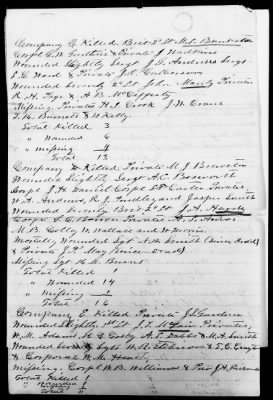 Company C Killed, Brvt 2d Lt
Corpl E. W. Guthrie & Private J. Watkins
Wounded Slightly Sergt J. T. Andrews Sergt
E. E. Ward & Private J. C. Culberson
Wounded Severely 1st Lt John Manly Privates
R. H. Page & A. B. McCafferty
Missing Privates H. S. Cook J. W. Crane
T. H. Burnett & W. Kelly
Total Killed 3
" Wounded 6
" missing 4
Total 13
Company D Killed Private M. J. Brewster
Wounded Slightly, Sergt A. C. Bosworth
Corpl J. H. Daniel Corpl Carter Privates
W. A. Andrews, R. J. Lindley and Jasper Smith
Wounded Severely Brvt 2d Lt J. A.
Corpl Private A. S. Amos
M. B. Colby W. Wallace and W. Morris
Mortally Wounded Sgt A. H. Smith (Since dead)
& Private J. K. May (Since dead)
Missing Sgt H. M. Burns
Total Killed 1
" Wounded 14
" missing 1
Total 16
Company E. Killed Private J. Gardner
Wounded Slightly 1st Lt J. T. McLain Privates,
W. M. Adams, A. T. Dabbs & M. A. Smith
Wounded Severely Sgts W. R.
& Corporal W. M.
Missing. Corpl W. B. Williams & Priv J. H.
Total Killed 1
" Wounded
" missing
Total